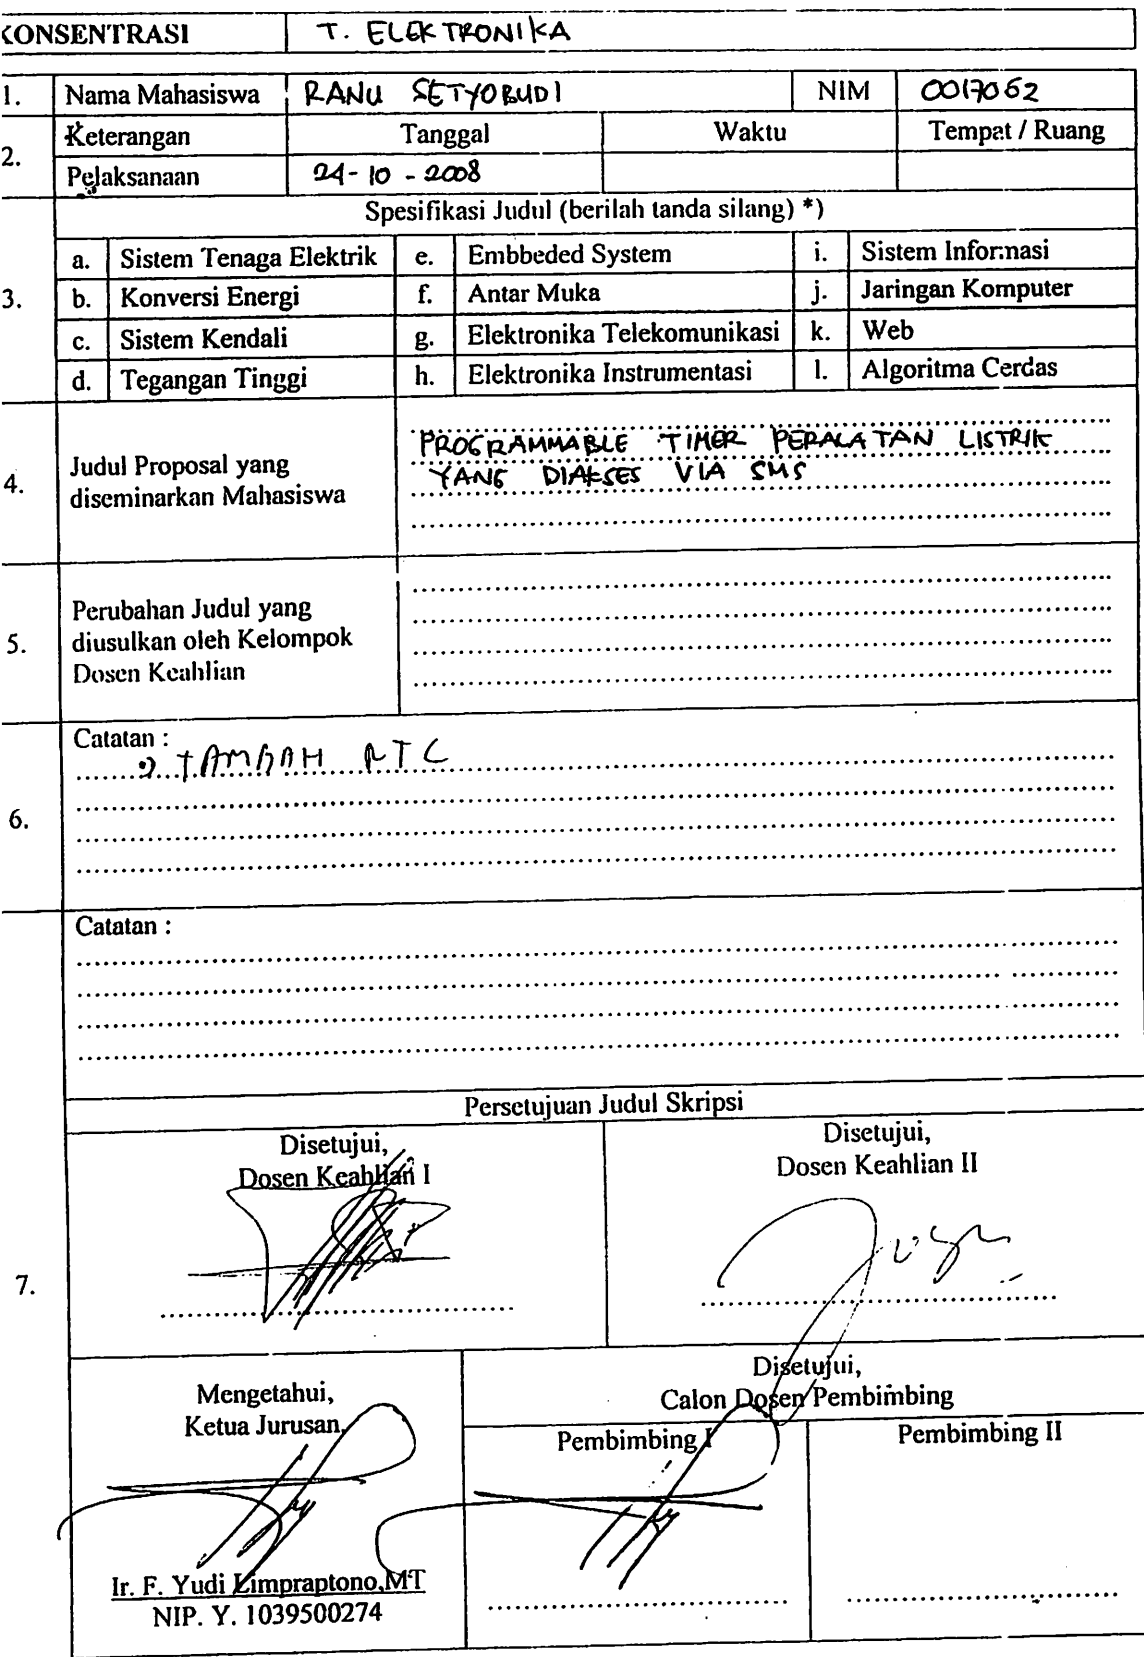 KONSENTRASI T. ELEKTRONIKA
1. Nama Mahasiswa RANU SETYOBUDI NIM 0017062
2. Keterangan Tanggal Waktu Tempat / Ruang
Pelaksanaan 24-10-2008
3. Spesifikasi Judul (berilah tanda silang) *)
a. Sistem Tenaga Elektrik e. Embbeded System i. Sistem Informasi
b. Konversi Energi f. Antar Muka j. Jaringan Komputer
c. Sistem Kendali g. Elektronika Telekomunikasi k. Web
d. Tegangan Tinggi h. Elektronika Instrumentasi l. Algoritma Cerdas
4. Judul Proposal yang
diseminarkan Mahasiswa
PROGRAMMABLE TIMER PERALATAN LISTRIK
YANG DIAKSES VIA SMS
5. Perubahan Judul yang
diusulkan oleh Kelompok
Dosen Keahlian
6. Catatan :
TAMBAH RTC
Catatan :
7. Persetujuan Judul Skripsi
Disetujui,
Dosen Keahlian I
Disetujui,
Dosen Keahlian II
Mengetahui,
Ketua Jurusan,
Ir. F. Yudi Limpraptono,MT
NIP. Y. 1039500274
Disetujui,
Calon Dosen Pembimbing
Pembimbing I Pembimbing II